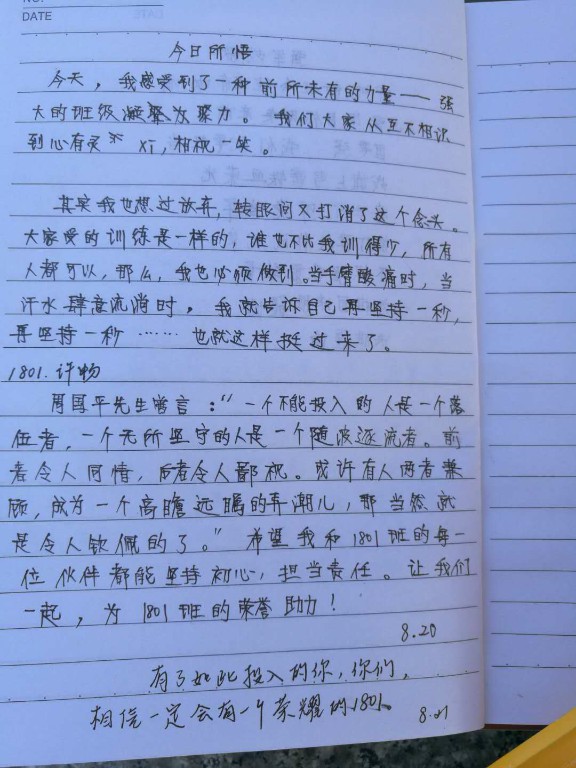 NO.
DATE
今日所悟
今天，我感受到了一种前所未有的力量——强
大的班级凝聚力。我们大家从互不相识
到心有灵xi，相视一笑。
其实我也想过放弃，转眼间又打消了这个念头。
大家受的训练是一样的，谁也不比我训得少，所有
人都可以，那么，我也必须做到。当手臂酸痛时，当
汗水肆意流淌时，我就告诉自己再坚持一秒，
再坚持一秒……也就这样挺过来了。
1801.许畅
周国平先生曾言：“一个不能投入的人是一个落
伍者，一个无所坚守的人是一个随波逐流者。前
者令人同情，后者令人鄙视。或许有人两者兼
顾，成为一个高瞻远瞩的弄潮儿，那当然就
是令人钦佩的了。”希望我和1801班的每一
位伙伴都能坚持初心，担当责任。让我们
一起，为1801班的荣誉助力！
8.20
有了如此投入的你，你们，
相信一定会有一个荣耀的1801。
8.21